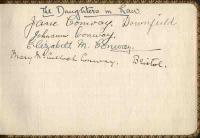 The Daughters in Law
Jane Conway Downfield
Johanna Conway.
Elizabeth M. Conway
Mary Conway. Bristol.